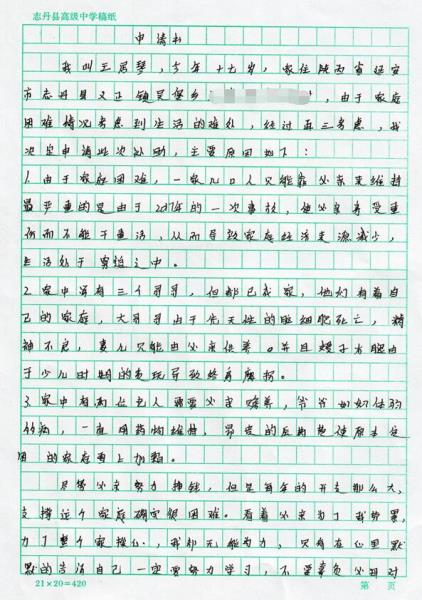 志丹县高级中学稿纸
申请书
我叫王居琴,今年十七岁,家住陕西省延安
市志丹县义正镇吴堡乡 ,由于家庭
困难情况考虑到生活的难处,经过再三考虑,我
决定申请此次补助,主要原因如下:
1.由于家庭困难,一家几口人只能靠父亲来维持
最严重的是由于2017年的一次事故,使父亲身受重
伤而不能干重活,从而导致家庭经济来源减少,
生活处于窘迫之中。
2.家中有三个哥哥,但都已成家,他们有着自
己的家庭,大哥哥由于先天性的脑细胞死亡,精
神不 ,妻儿只能由父亲供养。并且嫂子右腿由
于少儿时期的 导致终身腐拐。
3.家中有两位老人需要父亲赡养,爷爷奶奶体弱
多病,一直用药物维持,昂贵的 使原本 
困的家庭更上加难。
尽管父亲努力挣钱,但是每年的开支那么大,
支撑这个家庭确实很困难。看着父亲为了我劳累,
为了整个家操心,我却无能为力,只有在心里默
默的告诉自己一定要努力学习,不要辜负父母对
21×20=420 第 页